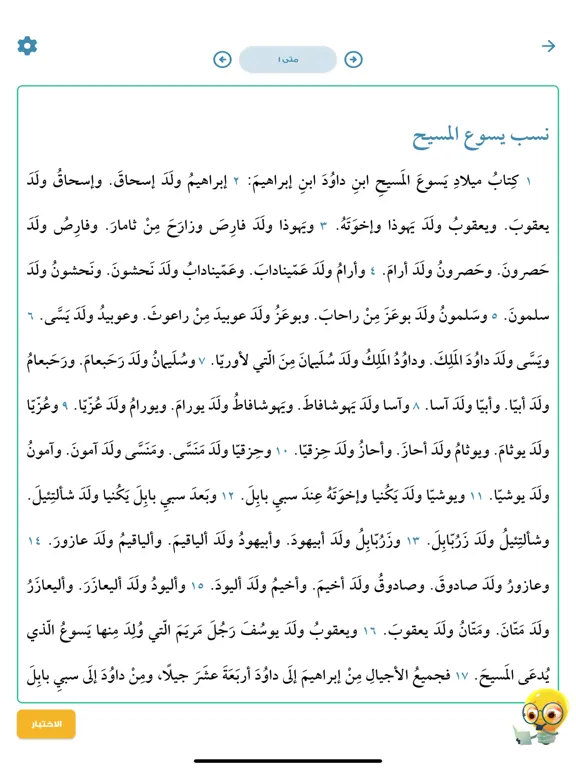 متى ١
نسب يسوع المسيح
١ كِتابُ ميلادِ يَسوعَ المَسيحِ ابنِ داوُدَ ابنِ إبراهيمَ: ٢ إبراهيمُ ولَدَ إسحاقَ. وإسحاقُ ولَدَ
يعقوبَ. ويعقوبُ ولَدَ يَهوذا وإخوَتَهُ. ٣ ويَهوذا ولَدَ فارِصَ وزارَحَ مِنْ ثامارَ. وفارِصُ ولَدَ
حَصرونَ. وحَصرونُ ولَدَ أرامَ. ٤ وأرامُ ولَدَ عَمّينادابَ. وعَمّينادابُ ولَدَ نَحشونَ. ونَحشونُ ولَدَ
سلمونَ. ٥ وسَلمونُ ولَدَ بوعَزَ مِنْ راحابَ. وبوعَزُ ولَدَ عوبيدَ مِنْ راعوثَ. وعوبيدُ ولَدَ يَسَّى. ٦
ويَسَّى ولَدَ داوُدَ المَلِكَ. وداوُدُ المَلِكُ ولَدَ سُلَيمانَ مِنَ الّتي لأوريّا. ٧ وسُلَيمانُ ولَدَ رَحَبعامَ. ورَحَبعامُ
ولَدَ أبيّا. وأبيّا ولَدَ آسا. ٨ وآسا ولَدَ يَهوشافاطَ. ويَهوشافاطُ ولَدَ يورامَ. ويورامُ ولَدَ عُزّيّا. ٩ وعُزّيّا
ولَدَ يوثامَ. ويوثامُ ولَدَ أحازَ. وأحازُ ولَدَ حِزقيّا. ١٠ وحِزقيّا ولَدَ مَنَسَّى. ومَنَسَّى ولَدَ آمونَ. وآمونُ
ولَدَ يوشيّا. ١١ ويوشيّا ولَدَ يَكُنيا وإخوَتَهُ عِندَ سبيِ بابِلَ. ١٢ وبَعدَ سبيِ بابِلَ يَكُنيا ولَدَ شألتِئيلَ.
وشألتِئيلُ ولَدَ زَرُبّابِلَ. ١٣ وزَرُبّابِلُ ولَدَ أبيهودَ. وأبيهودُ ولَدَ ألياقيمَ. وألياقيمُ ولَدَ عازورَ. ١٤
وعازورُ ولَدَ صادوقَ. وصادوقُ ولَدَ أخيمَ. وأخيمُ ولَدَ أليودَ. ١٥ وأليودُ ولَدَ أليعازَرَ. وأليعازَرُ
ولَدَ مَتّانَ. ومَتّانُ ولَدَ يعقوبَ. ١٦ ويعقوبُ ولَدَ يوسُفَ رَجُلَ مَريَمَ الّتي وُلِدَ مِنها يَسوعُ الّذي
يُدعَى المَسيحَ. ١٧ فجميعُ الأجيالِ مِنْ إبراهيمَ إلَى داوُدَ أربَعَةَ عشَرَ جيلًا، ومِنْ داوُدَ إلَى سبيِ بابِلَ
الاختبار